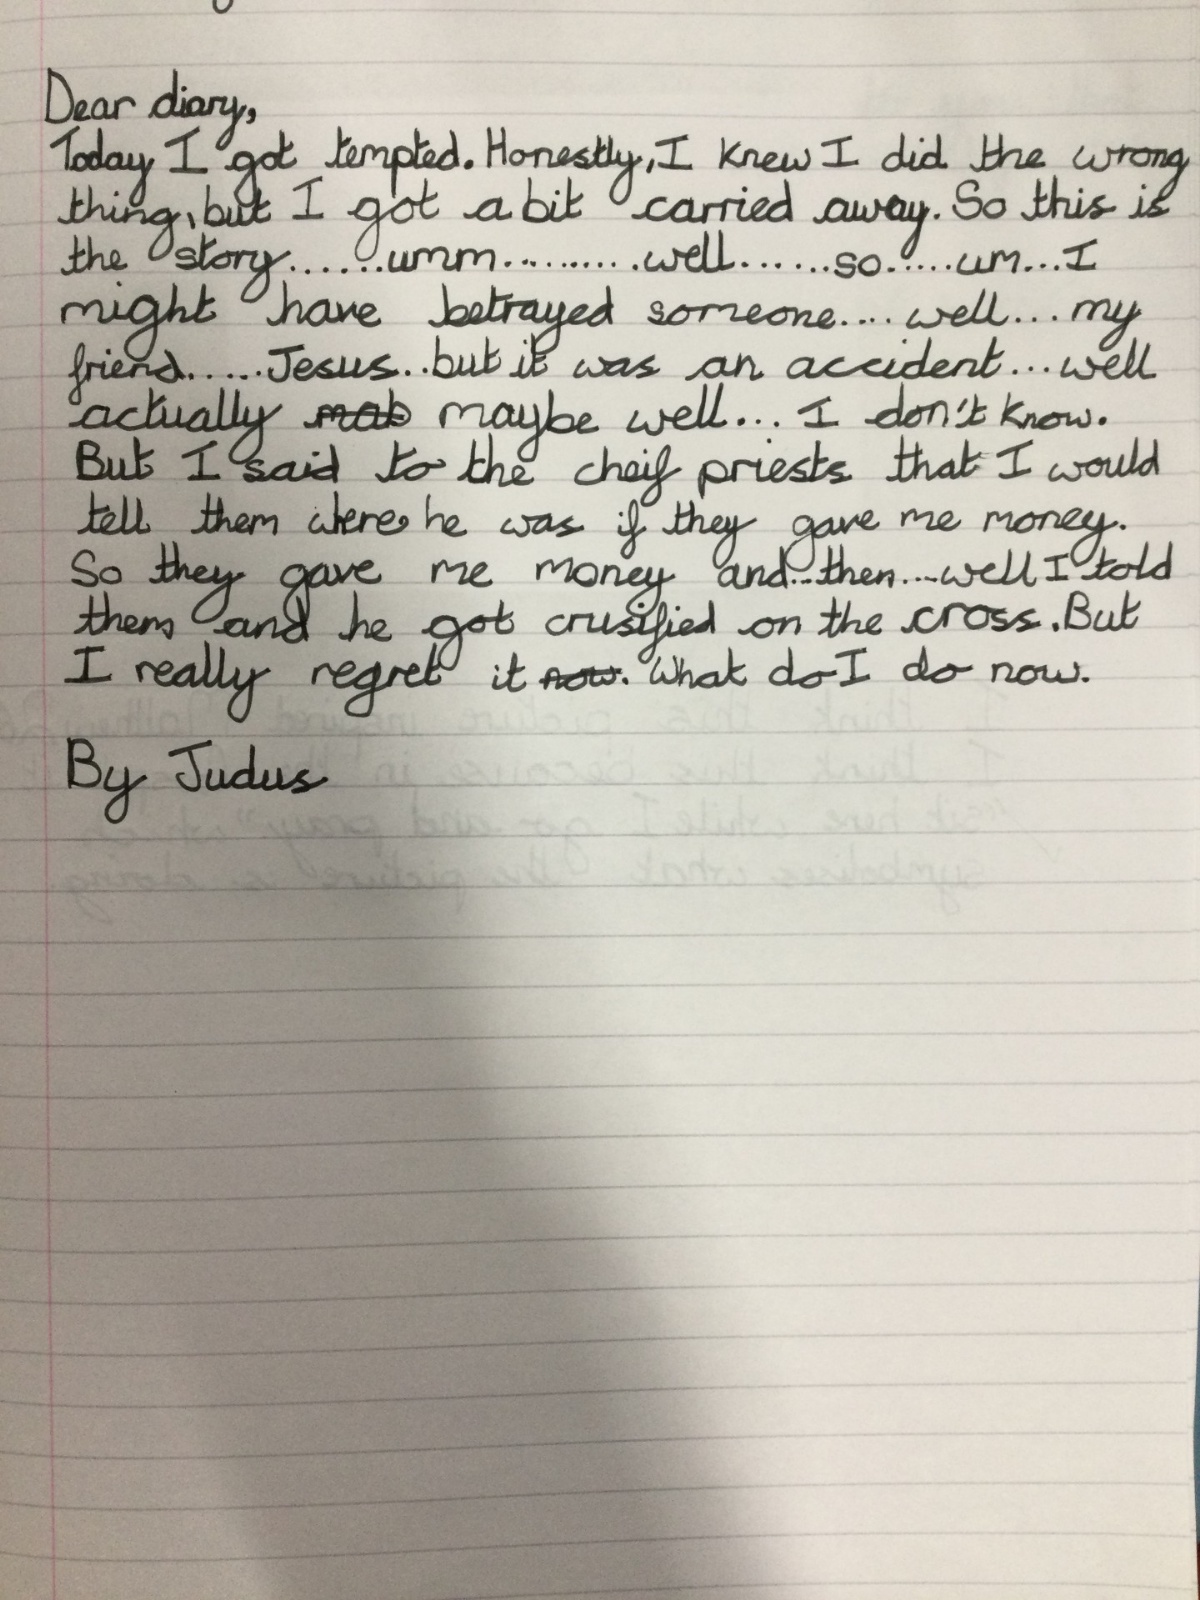 Dear diary,
Today I got tempted. Honestly, I knew I did the wrong
thing, but I got a bit carried away. So this is
the story......umm..........well......so.....um...I
might have betrayed someone.... well... my
friend......Jesus..but it was an accident...well
actually maybe well... I don't know.
But I said to the cheif priests that I would
tell them where he was if they gave me money.
So they gave me money and...then....well I told
them and he got crusified on the cross. But
I really regret it now. What do I do now.
By Judus